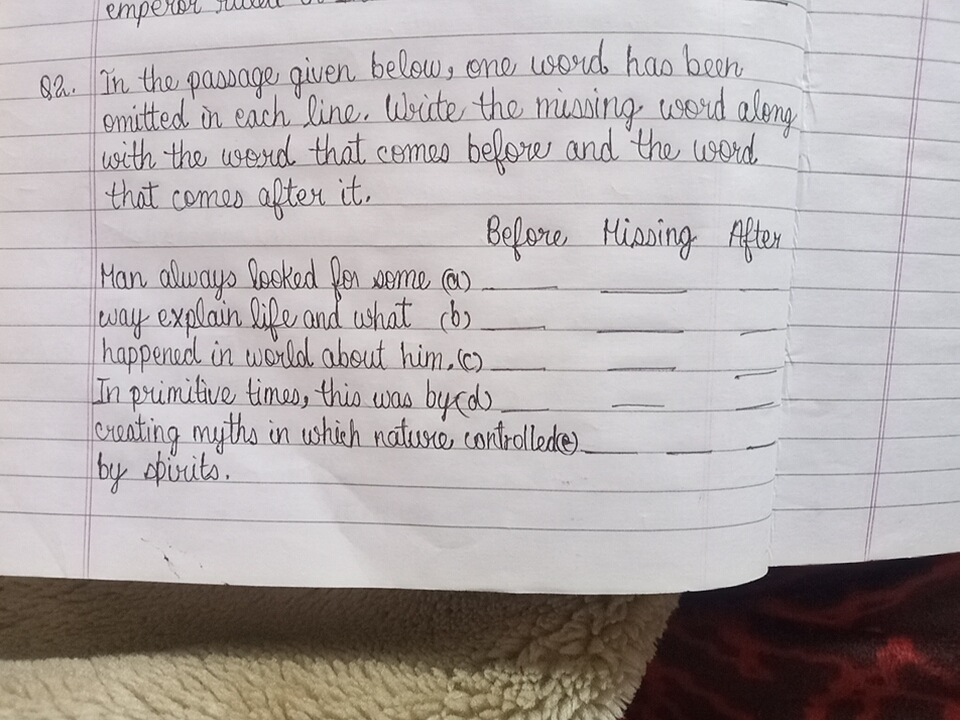 emperor
Q2. In the passage given below, one word has been
omitted in each line. Write the missing word along
with the word that comes before and the word
that comes after it.
Before Missing After
Man always looked for some (a) ____ ____ ____
way explain life and what (b) ____ ____ ____
happened in world about him. (c) ____ ____ ____
In primitive times, this was by (d) ____ ____ ____
creating myths in which nature controlled (e) ____ ____ ____
by spirits.